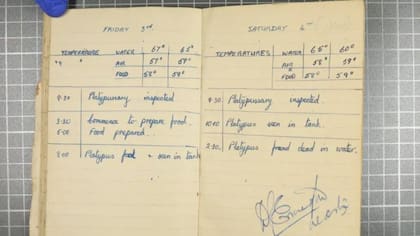 FRIDAY 3rd
TEMPERATURE WATER 67° 65°
" " AIR 57° 57°
FOOD 58° 58°
9.30 Platypussary inspected
3.30 Commence to prepare food.
5.00 Food prepared.
8.00 Platypus fed & seen in tank
SATURDAY 4th
TEMPERATURES WATER 65° 60°
AIR 58° 59°
FOOD 58° 59°
9.30 Platypussary inspected.
10.10 Platypus seen in tank.
2.30. Platypus found dead in water.